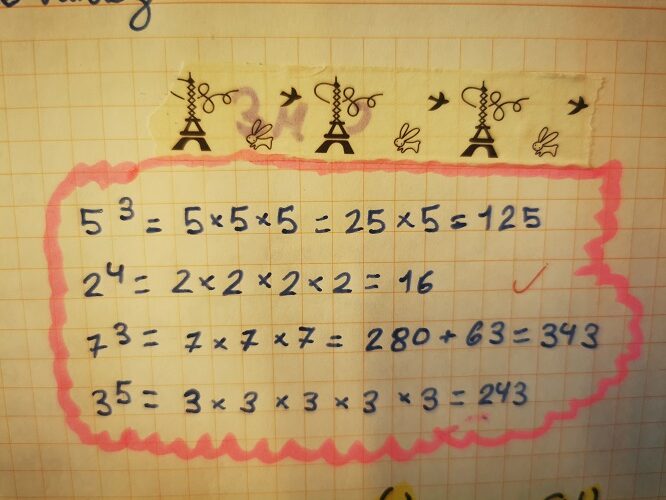 5³ = 5×5×5 = 25×5 = 125
2⁴ = 2×2×2×2 = 16
7³ = 7×7×7 = 280+63 = 343
3⁵ = 3×3×3×3×3 = 243